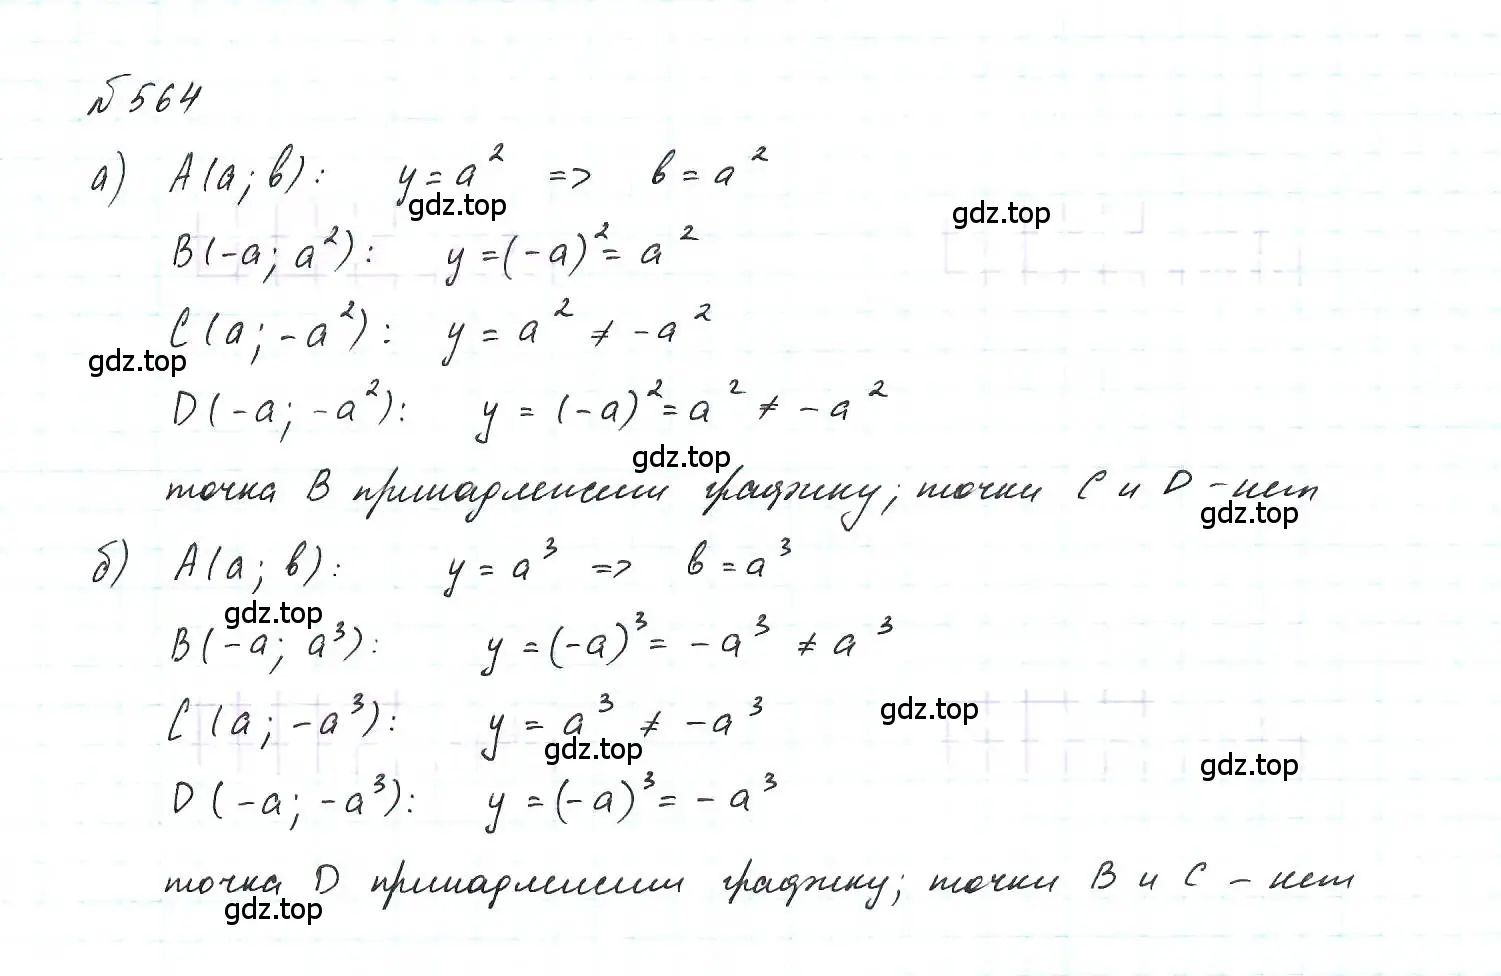 № 564
а) A(a; b): y = a² => b = a²
gdz.top
gdz.top
B(-a; a²): y = (-a)² = a²
C(a; -a²): y = a² ≠ -a²
gdz.top
D(-a; -a²): y = (-a)² = a² ≠ -a²
gdz.top
точка B принадлежит графику; точки C и D - нет
gdz.top
б) A(a; b): y = a³ => b = a³
gdz.top
B(-a; a³): y = (-a)³ = -a³ ≠ a³
C(a; -a³): y = a³ ≠ -a³
gdz.top
gdz.top
gdz.top
D(-a; -a³): y = (-a)³ = -a³
точка D принадлежит графику; точки B и C - нет
gdz.top